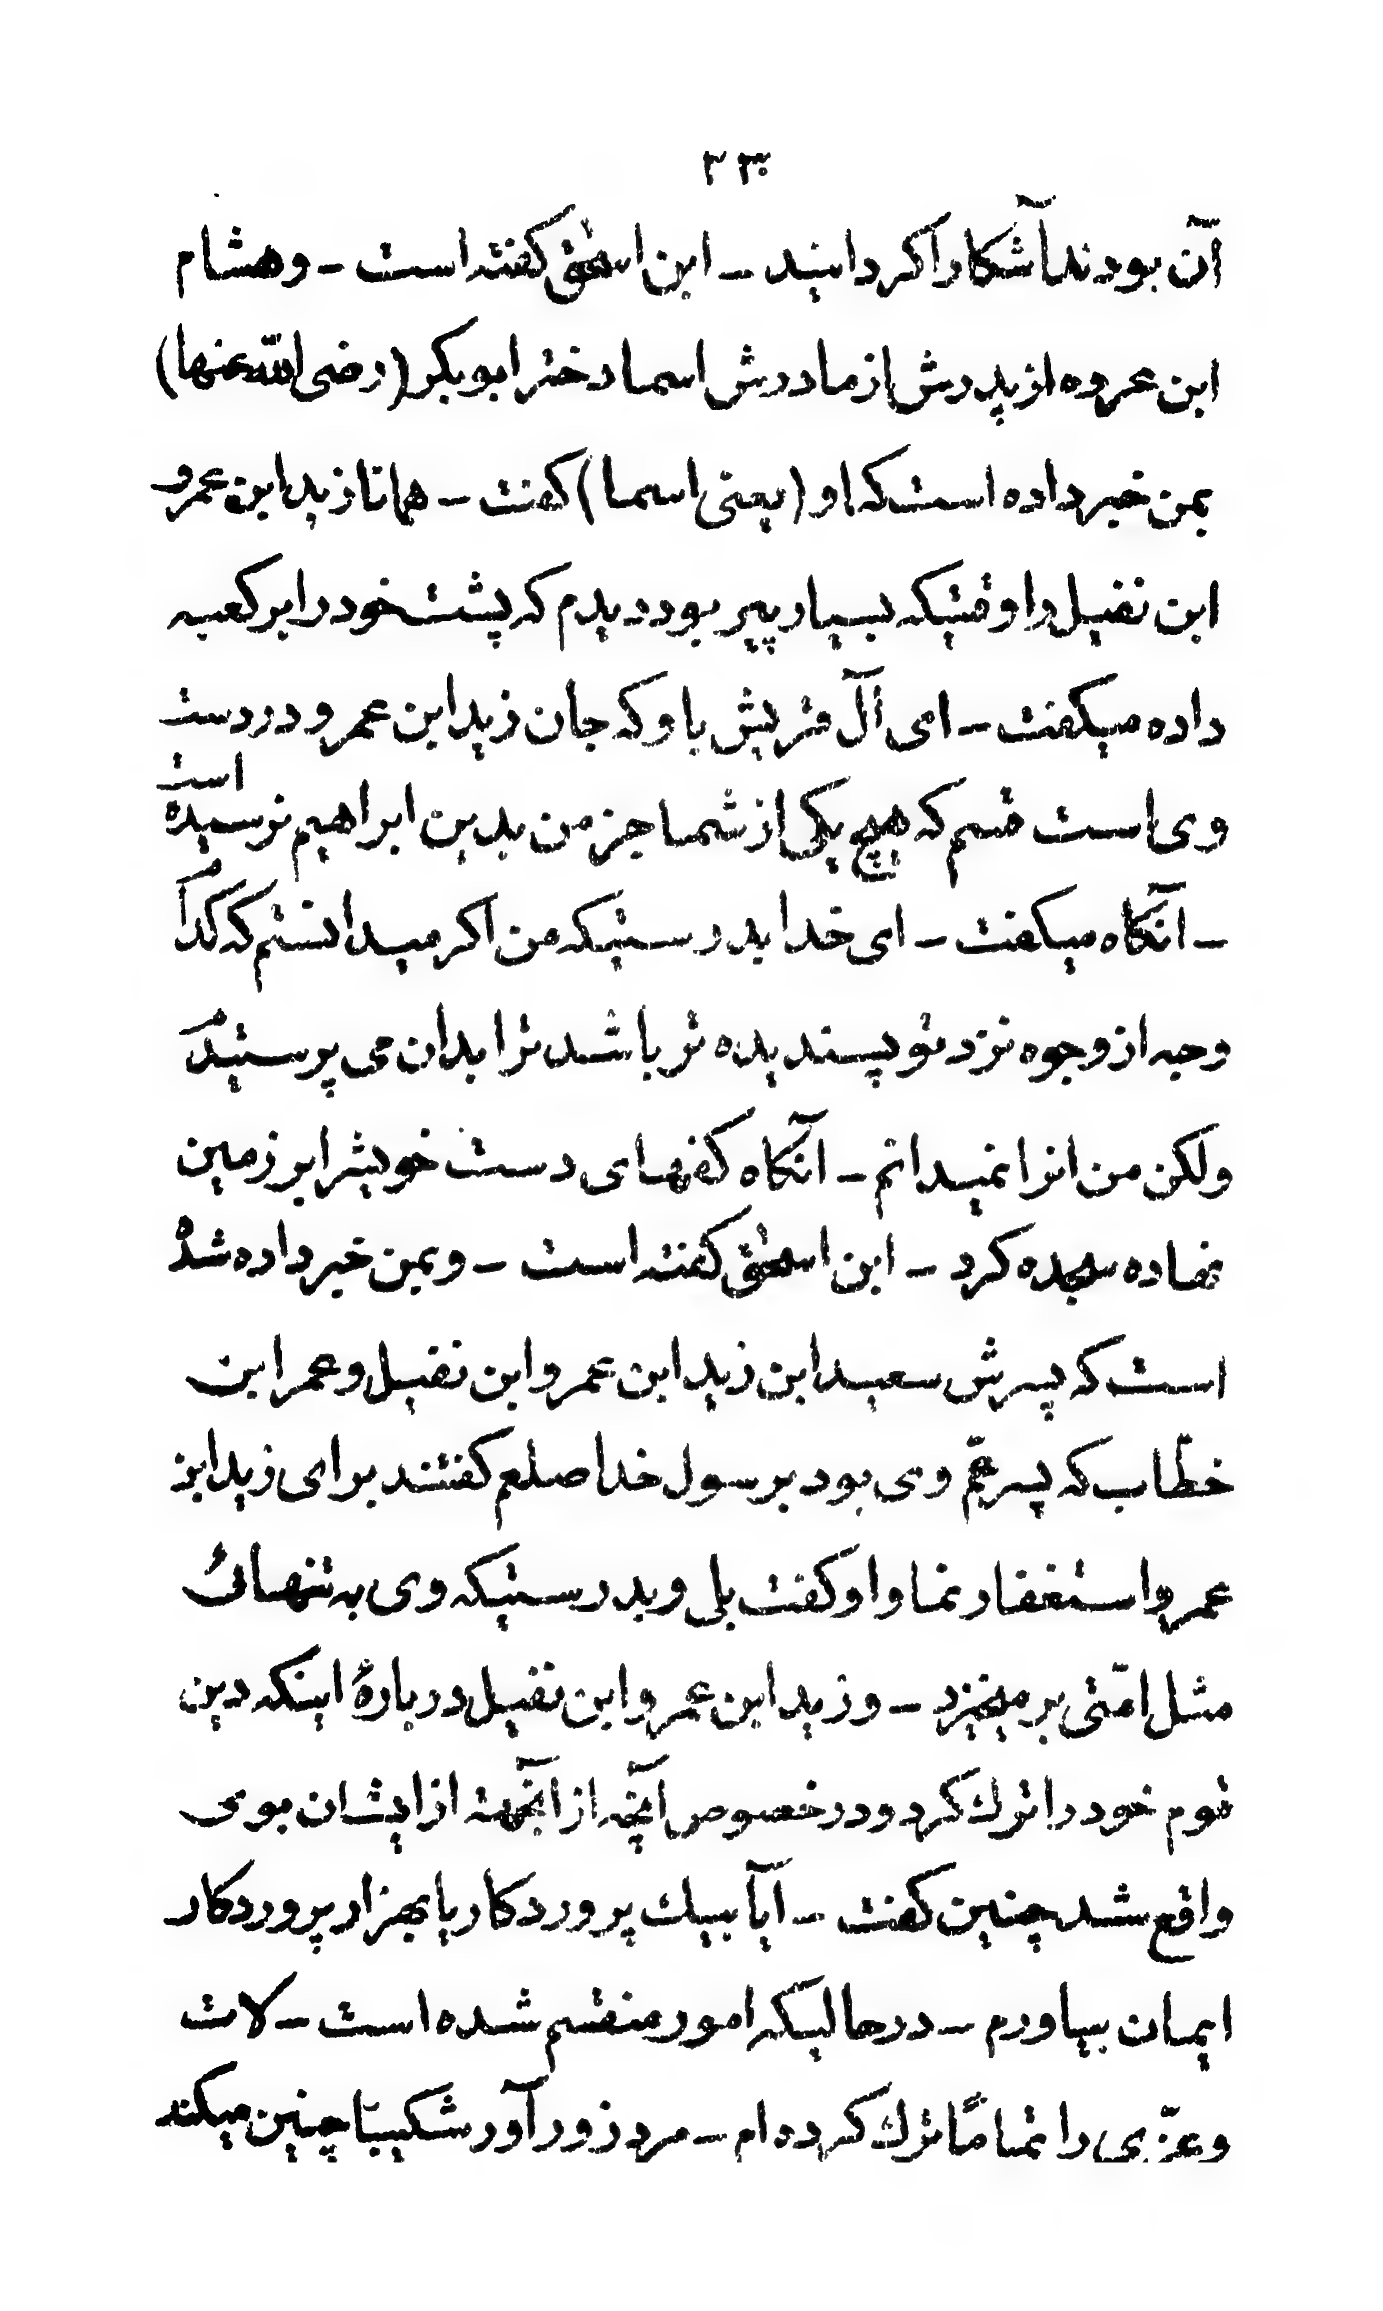 ۲۳
آن بودند آشکارا کردانید – ابن اسحٰق کفته است – وهشام
ابن عروه از پدرش از مادرش اسما دختر ابوبکر (رضی الله عنها)
بمن خبر داده است که او (یعنی اسما) کفت – همانا زید ابن عمرو
ابن نفیل را وقتیکه بسیار پیر بود دیدم که پشت خود را بر کعبه
داده میکفت – ای آل قریش باو که جان زید ابن عمرو در دست
وی است قسم که هیچ یکی از شما جز من بدین ابراهیم نرسیده است
– آنکاه میکفت – ای خدا بدرستیکه من اکر میدانستم که کدام
وجه از وجوه نزد تو پسندیده تر باشد ترا بدان می پرستیدم
ولکن من انرا نمیدانم – آنکاه کفهای دست خویشرا بر زمین
نهاده سجده کرد – ابن اسحٰق کفته است – وبمن خبر داده شده
است که پسرش سعید ابن زید ابن عمرو ابن نفیل وعمر ابن
خطّاب که پسر عمّ وی بود برسول خدا صلعم کفتند برای زید ابن
عمرو استغفار نما واو کفت بلی وبدرستیکه وی به تنهائ
مثل امّتی برمیخیزد – وزید ابن عمرو ابن نفیل در بارهٔ اینکه دین
قوم خود را ترك کرد ودر خصوص آنچه از آنجهة از ایشان بوی
واقع شد چنین کفت – آیا بیك پروردکار یا بهزار پروردکار
ایمان بیاورم – در حالیکه امور منقسم شده است – لات
وعزّی را تمامًا ترك کرده ام – مرد زور آور شکیبا چنین میکند